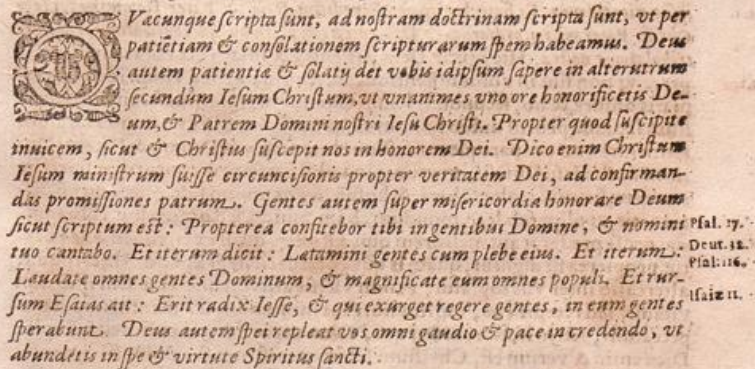 QVæcunque ſcripta ſunt, ad noſtram doctrinam ſcripta ſunt, vt per
patiētiam & conſolationem ſcripturarum ſpem habeamus. Deus
autem patientiæ & ſolatij det vobis idipſum ſapere in alterutrum
ſecundùm Ieſum Chriſtum, vt vnanimes vno ore honorificetis De-
um, & Patrem Domini noſtri Ieſu Chriſti. Propter quod ſuſcipite
inuicem, ſicut & Chriſtus ſuſcepit nos in honorem Dei. Dico enim Chriſtum
Ieſum miniſtrum fuiſſe circunciſionis propter veritatem Dei, ad confirman-
das promiſſiones patrum. Gentes autem ſuper miſericordia honorare Deum
ſicut ſcriptum eſt: Propterea confitebor tibi in gentibus Domine, & nomini Pſal. 17.
tuo cantabo. Et iterum dicit: Lætamini gentes cum plebe eius. Et iterum: Deut. 32.
Pſal: 116.
Laudate omnes gentes Dominum, & magnificate eum omnes populi. Et rur-
ſum Eſaias ait: Erit radix Ieſſe, & qui exurget regere gentes, in eum gentes Iſaiæ 11.
ſperabunt. Deus autem ſpei repleat vos omni gaudio & pace in credendo, vt
abundetis in ſpe & virtute Spiritus ſancti.